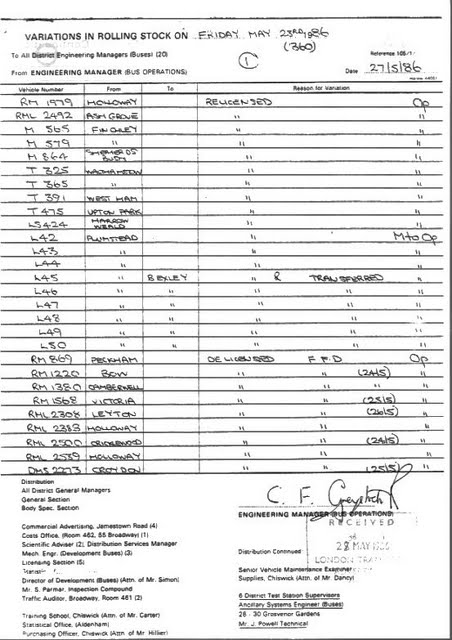 VARIATIONS IN ROLLING STOCK ON FRIDAY MAY 23RD, 86
(360)
To All District Engineering Managers (Buses) (20)
1
Reference 105/1
From ENGINEERING MANAGER (BUS OPERATIONS)
Date 27/5/86
Vehicle Number From To Reason for Variation
RM 1979 HOLLOWAY RELICENSED Op
RML 2492 ASH GROVE " "
M 565 FINCHLEY " "
M 579 " " "
M 864 SHEPHERDS BUSH " "
T 325 WALTHAMSTOW " "
T 365 " " "
T 391 WEST HAM " "
T 475 UPTON PARK " "
LS 424 HARROW WEALD " "
L42 PLUMSTEAD " M to Op
L43 " " "
L44 " " "
L45 " BEXLEY " & TRANSFERRED "
L46 " " " " "
L47 " " " " "
L48 " " " " "
L49 " " " " "
L50 " " " " "
RM 869 PECKHAM DELICENSED F.P.D Op
RM 1220 BOW " " (24/5) "
RM 1380 CAMBERWELL " " " "
RM 1568 VICTORIA " " (25/5) "
RML 2308 LEYTON " " (26/5) "
RML 2383 HOLLOWAY " " "
RML 2500 CRICKLEWOOD " " (24/5) "
RML 2539 HOLLOWAY " " "
DMS 2273 CROYDON " " (25/5) "
Distribution
All District General Managers
General Section
Body Spec. Section
ENGINEERING MANAGER (BUS OPERATIONS)
RECEIVED
28 MAY
LONDON
Commercial Advertising, Jamestown Road (4)
Costs Office, (Room 462, 55 Broadway) (1)
Scientific Adviser (2); Distribution Services Manager
Mech. Engr. (Development Buses) (3)
Licensing Section (5)
Director of Development (Buses) (Attn. of Mr. Simon)
Mr. S. Parmar, Inspection Compound
Traffic Auditor, Broadway, Room 461 (2)
Training School, Chiswick (Attn. of Mr. Carter)
Statistical Office, (Aldenham)
Purchasing Officer, Chiswick (Attn. of Mr Hillier)
Distribution Continued
Senior Vehicle Maintenance Examiner
Supplies, Chiswick (Attn. of Mr. Dancy)
6 District Test Station Supervisors
Ancillary Systems Engineer (Buses)
26 - 30 Grosvenor Gardens
Mr. J. Powell Technical